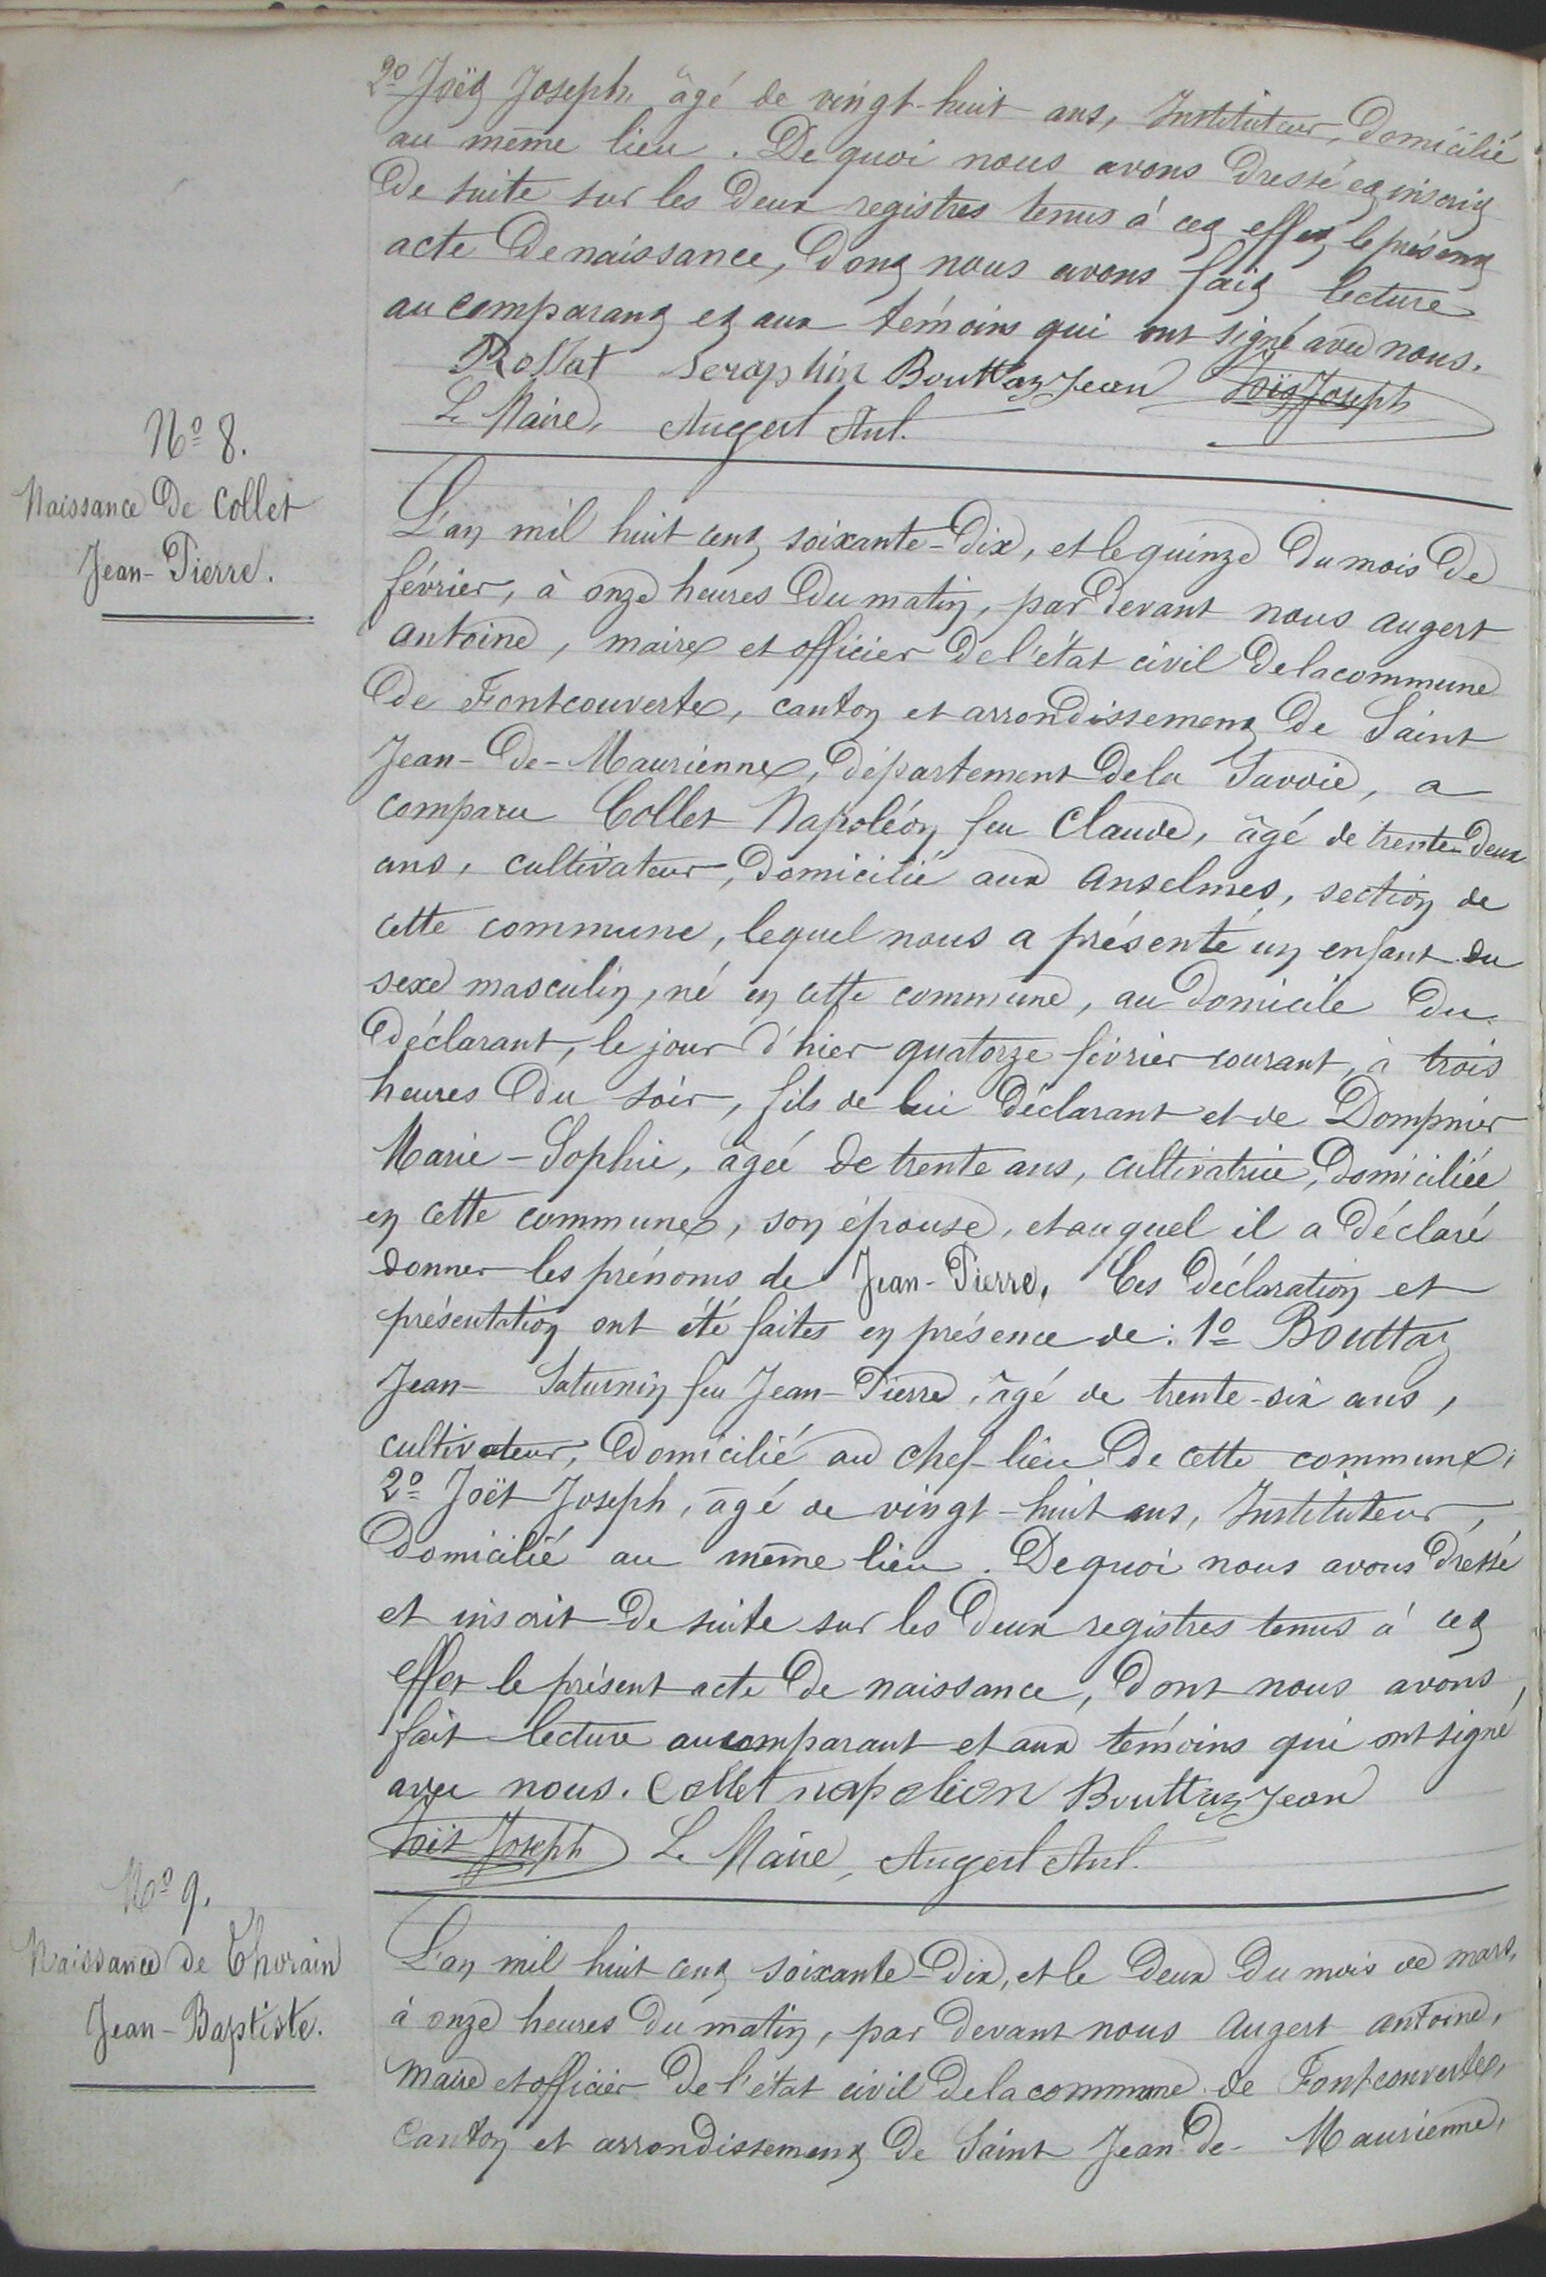 2º Joët Joseph, âgé de vingt-huit ans, Instituteur, domicilié
au même lieu. De quoi nous avons dressé et inscrit
de suite sur les deux registres tenus à cet effet le présent
acte de naissance, dont nous avons fait lecture
au comparant et aux témoins qui ont signé avec nous.
Rossat Seraphin Bouttaz Jean Joët Joseph
Le Maire, Augert Ant.
Nº 8.
Naissance de Collet
Jean-Pierre.
L'an mil huit cent soixante-dix, et le quinze du mois de
février, à onze heures du matin, par devant nous Augert
Antoine, maire et officier de l'état civil de la commune
de Fontcouverte, canton et arrondissement de Saint
Jean-de-Maurienne, département de la Savoie, a
comparu Collet Napoléon feu Claude, âgé de trente-deux
ans, cultivateur, domicilié aux Anselmes, section de
cette commune, lequel nous a présenté un enfant du
sexe masculin, né en cette commune, au domicile du
déclarant, le jour d'hier quatorze février courant, à trois
heures du soir, fils de lui déclarant et de Dompnier
Marie-Sophie, âgée de trente ans, cultivatrice, domiciliée
en cette commune, son épouse, et auquel il a déclaré
donner les prénoms de Jean-Pierre. Ces déclaration et
présentation ont été faites en présence de: 1º Bouttaz
Jean-Saturnin feu Jean-Pierre, âgé de trente-six ans,
cultivateur, domicilié au chef-lieu de cette commune;
2º Joët Joseph, âgé de vingt-huit ans, Instituteur,
domicilié au même lieu. De quoi nous avons dressé
et inscrit de suite sur les deux registres tenus à cet
effet le présent acte de naissance, dont nous avons
fait lecture au comparant et aux témoins qui ont signé
avec nous. Collet napoleion Bouttaz Jean
Joët Joseph Le Maire, Augert Ant.
Nº 9.
Naissance de Thorain
Jean-Baptiste.
L'an mil huit cent soixante-dix, et le deux du mois de mars,
à onze heures du matin, par devant nous Augert Antoine,
maire et officier de l'état civil de la commune de Fontcouverte,
canton et arrondissement de Saint Jean-de-Maurienne,